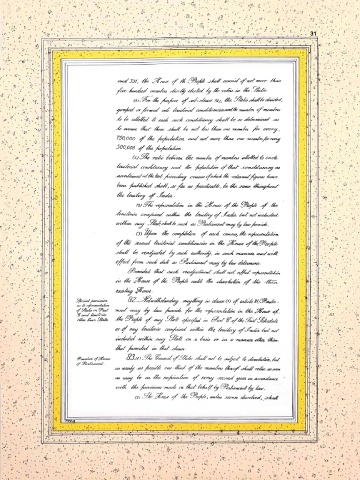 31
and 331, the House of the People shall consist of not more than
five hundred members directly elected by the voters in the States.
(b) For the purpose of sub-clause (a), the States shall be divided,
grouped or formed into territorial constituencies and the number of members
to be allotted to each such constituency shall be so determined as
to ensure that there shall be not less than one member for every
750,000 of the population and not more than one member for every
500,000 of the population.
(c) The ratio between the number of members allotted to each
territorial constituency and the population of that constituency as
ascertained at the last preceding census of which the relevant figures have
been published shall, so far as practicable, be the same throughout
the territory of India.
(2) The representation in the House of the People of the
territories comprised within the territory of India but not included
within any State shall be such as Parliament may by law provide.
(3) Upon the completion of each census, the representation
of the several territorial constituencies in the House of the People
shall be readjusted by such authority, in such manner and with
effect from such date as Parliament may by law determine:
Provided that such readjustment shall not affect representation
in the House of the People until the dissolution of the then
existing House.
Special provision
as to representation
of States in Part
C and territories
other than States.
82. Notwithstanding anything in clause (1) of article 81, Parlia-
ment may by law provide for the representation in the House of
the People of any State specified in Part C of the First Schedule
or of any territories comprised within the territory of India but not
included within any State on a basis or in a manner other than
that provided in that clause.
Duration of Houses
of Parliament.
83. (1) The Council of States shall not be subject to dissolution, but
as nearly as possible one third of the members thereof shall retire as soon
as may be on the expiration of every second year in accordance
with the provisions made in that behalf by Parliament by law.
(2) The House of the People, unless sooner dissolved, shall